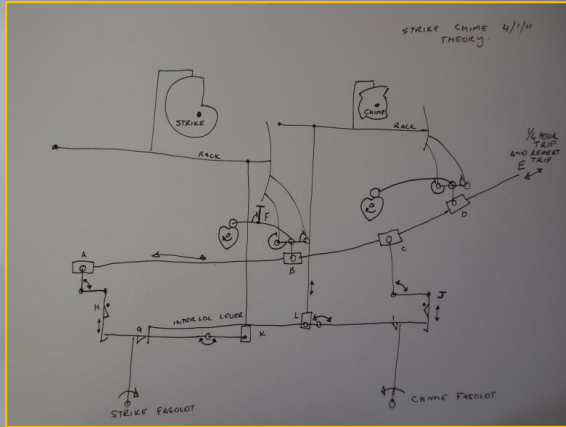 STRIKE CHIME 4/1/11
THEORY.
STRIKE
CHIME
RACK
RACK
1/4 HOUR
TRIP
AND REPEAT
TRIP
E
F
D
A
B
C
H
J
INTERLOL LEVER
L
G
K
I
STRIKE FAGOLOT
CHIME FAGOLOT